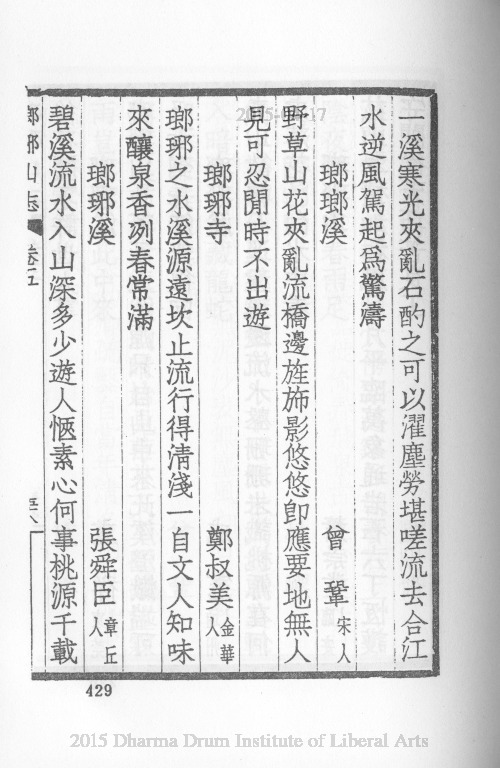 一溪寒光夾亂石酌之可以濯塵勞堪嗟流去合江
水逆風駕起爲驚濤
瑯瑯溪 曾鞏 宋人
野草山花夾亂流橋邊旌斾影悠悠卽應要地無人
見可忍閒時不出遊
瑯琊寺 鄭叔美 金華人
瑯琊之水溪源遠坎止流行得淸淺一自文人知味
來釀泉香冽春常滿
瑯琊溪 張舜臣 章丘人
碧溪流水入山深多少遊人愜素心何事桃源千載
瑯琊山志 卷五 五八
429
2015 Dharma Drum Institute of Liberal Arts